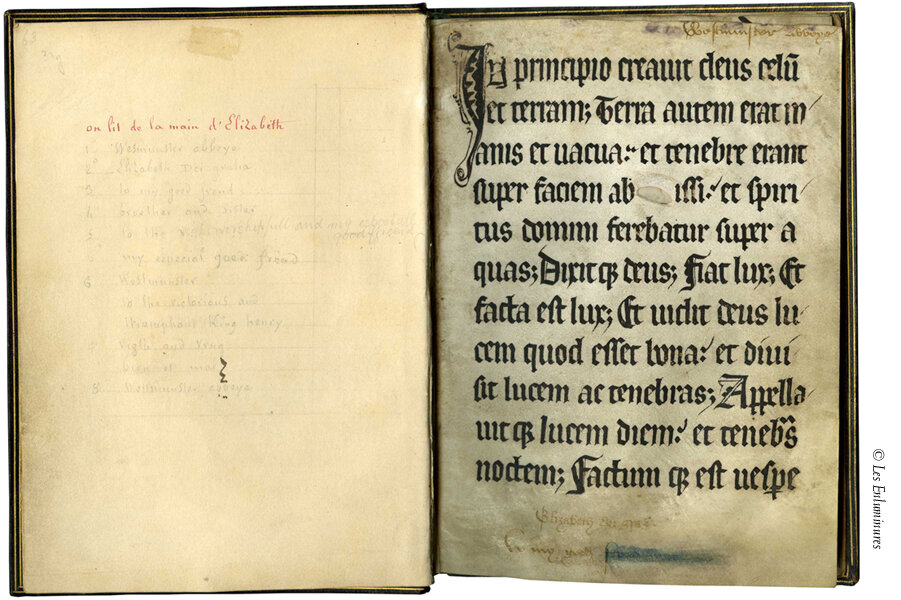 on lit de la main d'Elizabeth
1 Westmunster abboye
2° Elizabeth Dei gratia
3 to my good frend
4 broether and sister
5 to the right worshepfull and my especiall
good frend
my especial good frend
6 Westmunster
to the victorious and
triumphant King henry
Vigla and Vrag
bien et mal
8 Westmunster abboye
Westminster abboye
In principio creauit deus celū
et terram; Terra autem erat in/
anis et uacua: et tenebre erant
super faciem ab issi: et spiri
tus domini ferebatur super a
quas; Dixitqꝫ deus; Fiat lux; Et
facta est lux; Et uidit deus lu/
cem quod esset bona: et diui
sit lucem ac tenebras; Appella/
uitqꝫ lucem diem: et tenebᷓs
noctem; Factumqꝫ est uespe
Elizabeth
to my good frend
© Les Enluminures